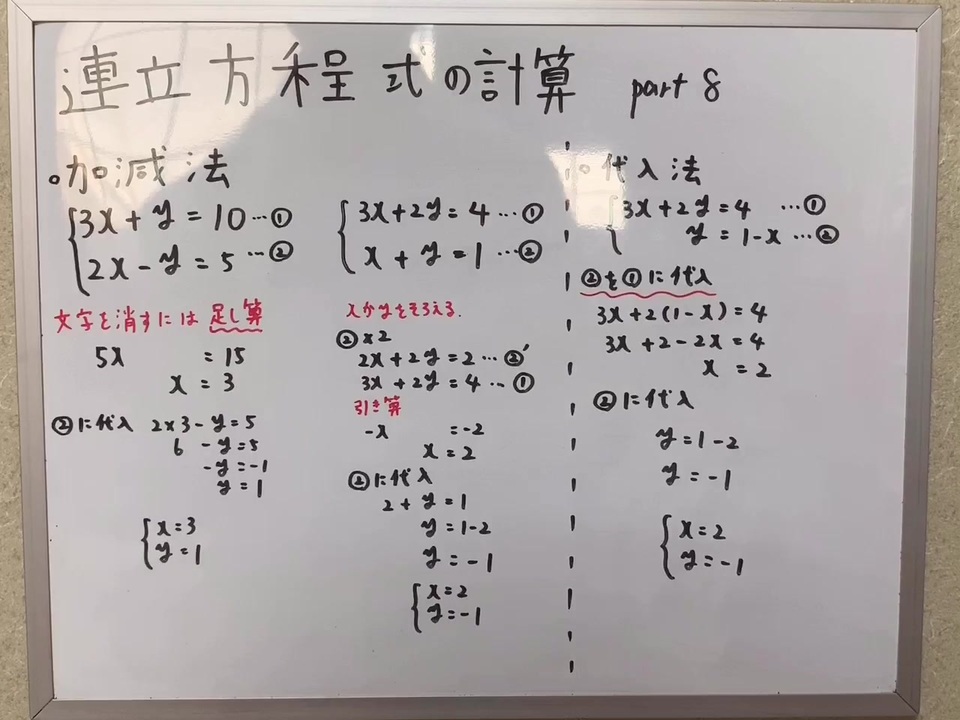 連立方程式の計算 part 8
○加減法
3x + y = 10 …①
2x - y = 5 …②
文字を消すには 足し算
5x = 15
x = 3
②に代入 2×3 - y = 5
6 - y = 5
-y = -1
y = 1
x = 3
y = 1
3x + 2y = 4 …①
x + y = 1 …②
xかyをそろえる.
②×2
2x + 2y = 2 …②'
3x + 2y = 4 …①
引き算
-x = -2
x = 2
②に代入
2 + y = 1
y = 1 - 2
y = -1
x = 2
y = -1
○代入法
3x + 2y = 4 …①
y = 1 - x …②
②を①に代入
3x + 2(1 - x) = 4
3x + 2 - 2x = 4
x = 2
②に代入
y = 1 - 2
y = -1
x = 2
y = -1